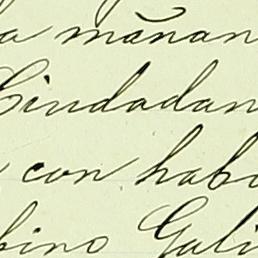 a mãnan
Ciudadan
con habi
bino Gali